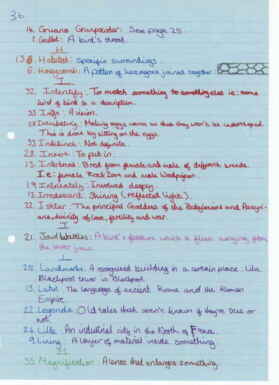 30
14. Guano Graspaider: See page 25
1. Gullet: A bird's throat.
H
13. Habitat: Specific surroundings.
6. Honeycomb: A pattern of hexagons joined together
I
32. Identify: To match something to something else ie: name
bird of bird to a description.
33. Iago: A vision.
Incubating: Making eggs warm so that they won't be interrupted.
This is done by sitting on the eggs.
33. Indefinite: Not definite.
28. Insert: To put in.
Interbred: Bred from female and male of different breeds.
I.e: female Rock Dove and male Woodpigeon.
19. Intricately: Involved deeply.
12. Iridescent: Shining (reflected light).
22. Ishtar: The principal Goddess of the Babylonians and Assyri-
ans, divinity of love, fertility and war.
J
21. Jowl Wattles: A bird's feature which is flesh hanging from
the lower jaw.
L
25. Landmark: A recognised building in a certain place. Like
Blackpool tower in Blackpool.
13. Latin: The language of ancient Rome and the Roman
Empire.
27. Legends: Old tales that aren't known if they're true or
not.
26. Lille: An industrial city in the North of France.
9. Lining: A layer of material inside something.
M
33. Magnification: A lense that enlarges something.